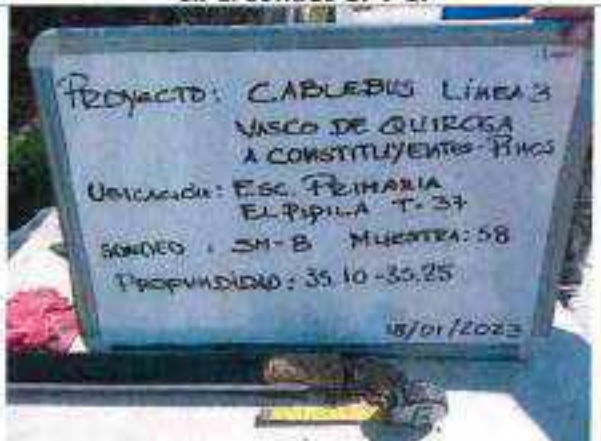 PROYECTO: CABLEBUS LíNEA 3
VASCO DE QUIROGA
A CONSTITUYENTES-PINOS
UBICACIÓN: ESC. PRIMARIA
EL PIPILA T-37
SONDEO : SM-8 MUESTRA: 58
PROFUNDIDAD: 35.10-35.25
18/01/2023